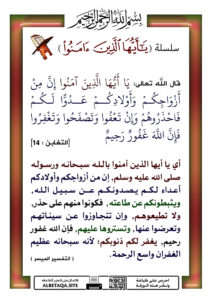 بسم الله الرحمن الرحيم
سلسلة ﴿ يَٰٓأَيُّهَا ٱلَّذِينَ ءَامَنُوا۟ ﴾
قال الله تعالى: يَا أَيُّهَا الَّذِينَ آمَنُوا إِنَّ مِنْ
أَزْوَاجِكُمْ وَأَوْلَادِكُمْ عَدُوًّا لَكُمْ
فَاحْذَرُوهُمْ وَإِنْ تَعْفُوا وَتَصْفَحُوا وَتَغْفِرُوا
فَإِنَّ اللَّهَ غَفُورٌ رَحِيمٌ
[التغابن : 14]
أي يا أيها الذين آمنوا بالله سبحانه ورسوله
صلى الله عليه وسلم, إن من أزواجكم وأولادكم
أعداء لكم يصدونكم عن سبيل الله,
ويثبطونكم عن طاعته, فكونوا منهم على حذر,
ولا تطيعوهم, وإن تتجاوزوا عن سيئاتهم
وتعرضوا عنها, وتستروها عليهم, فإن الله غفور
رحيم, يغفر لكم ذنوبكم؛ لأنه سبحانه عظيم
الغفران واسع الرحمة.
( التفسير الميسر )
ALBETAQA.SITE